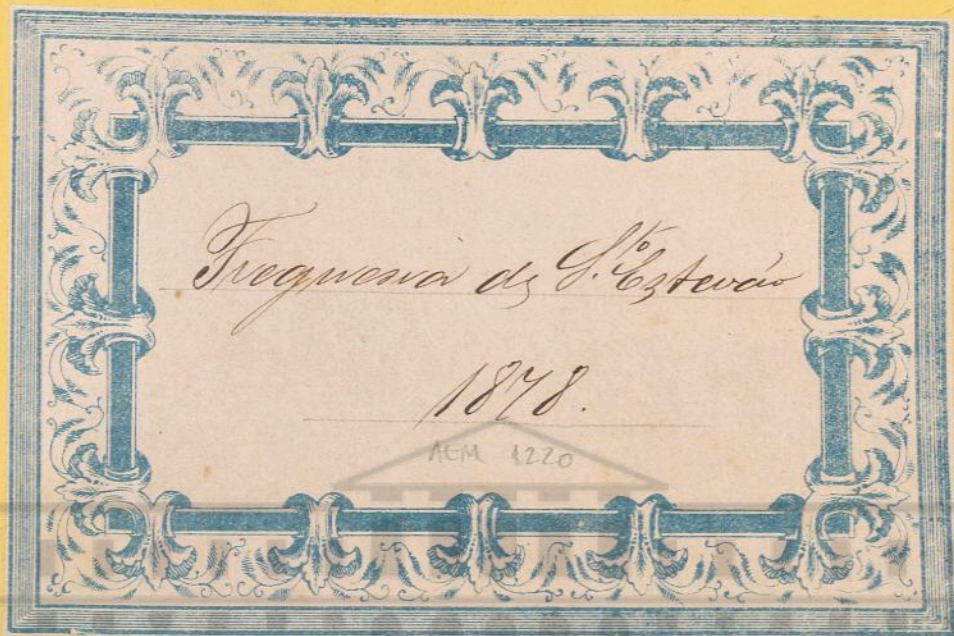 Freguesia de S.to Estevão
1878.
AEM 1220